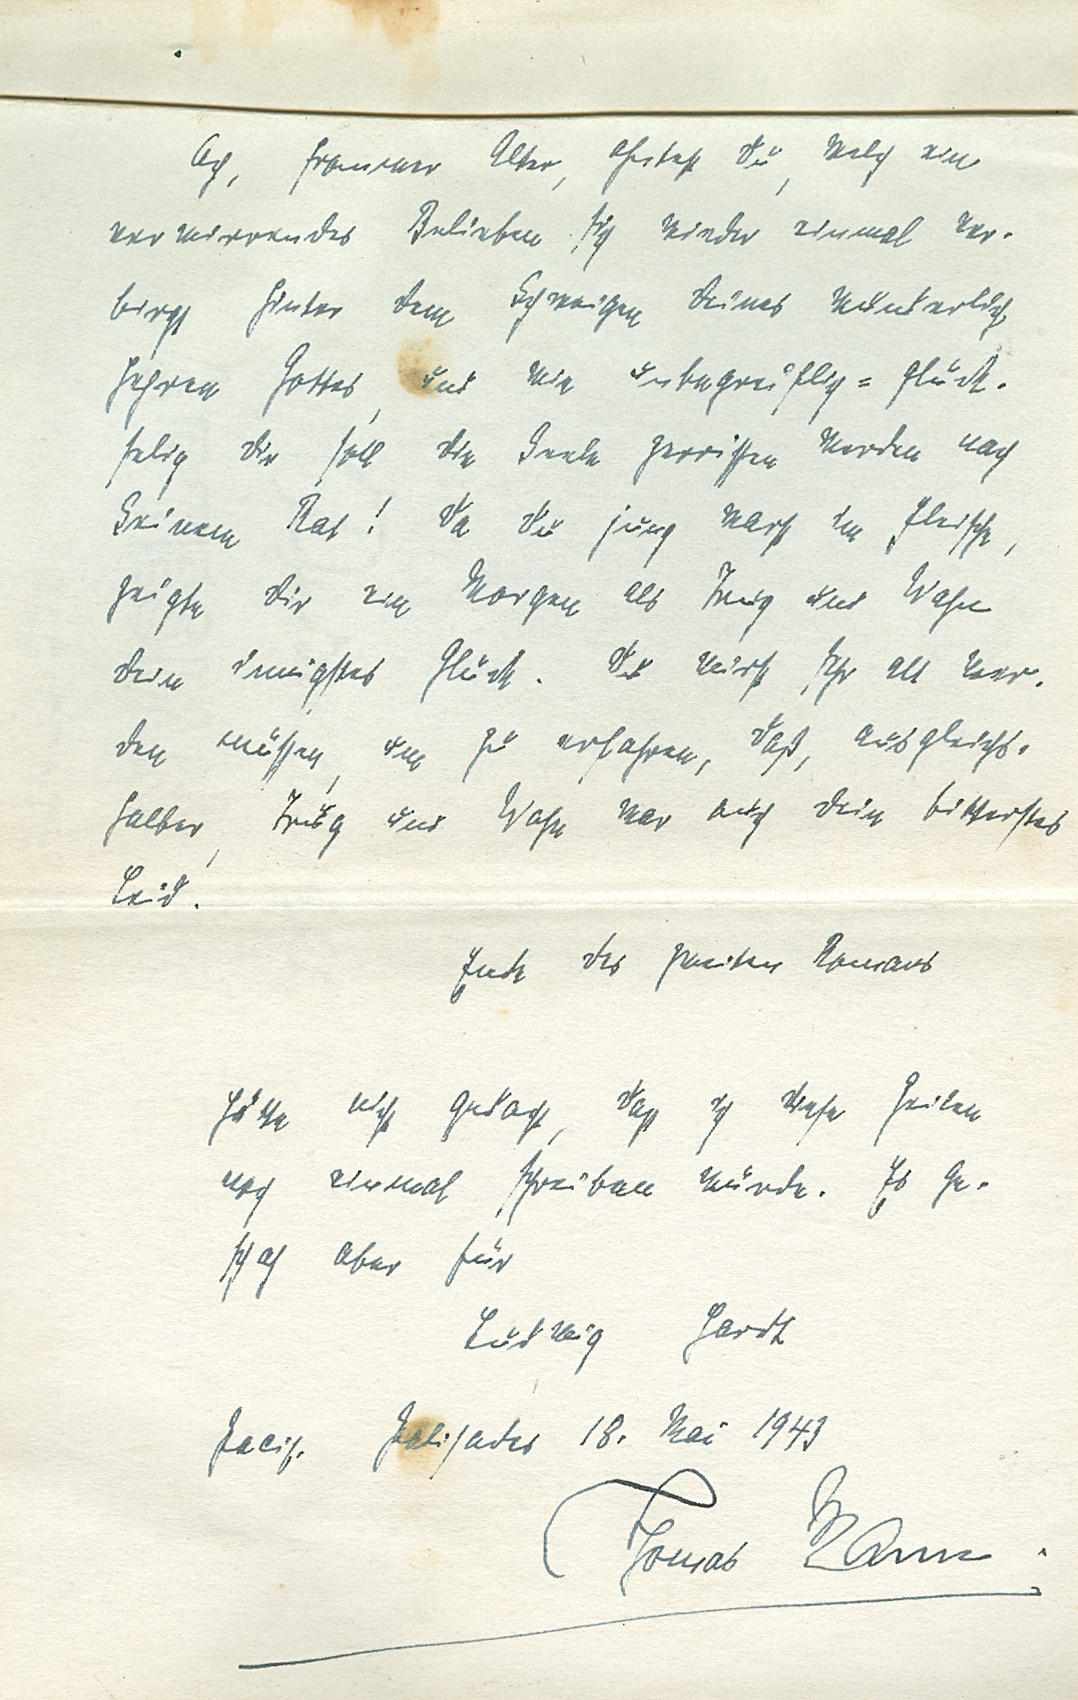 Ach, frommer Alter, ahntest Du, welch ein
verwirrendes Belieben sich wieder einmal ver-
birgt hinter dem Schweigen deines wunderlich
hehren Gottes, und wie unbegreiflich = glück-
selig dir soll die Seele zerrissen werden nach
Seinem Rat! Da du jung warst im Fleische,
zeigte dir ein Morgen als Trug und Wahn
dein innigstes Glück. Du wirst sehr alt wer-
den müssen, um zu erfahren, daß, ausgleichs-
halber, Trug und Wahn war auch dein bitterstes
Leid.
Ende des zweiten Romans
Hätte nicht gedacht, daß ich diese Zeilen
noch einmal schreiben würde. Es ge-
schah aber für
Ludwig Hardt
Pacif. Palisades 18. Mai 1943
Thomas Mann.